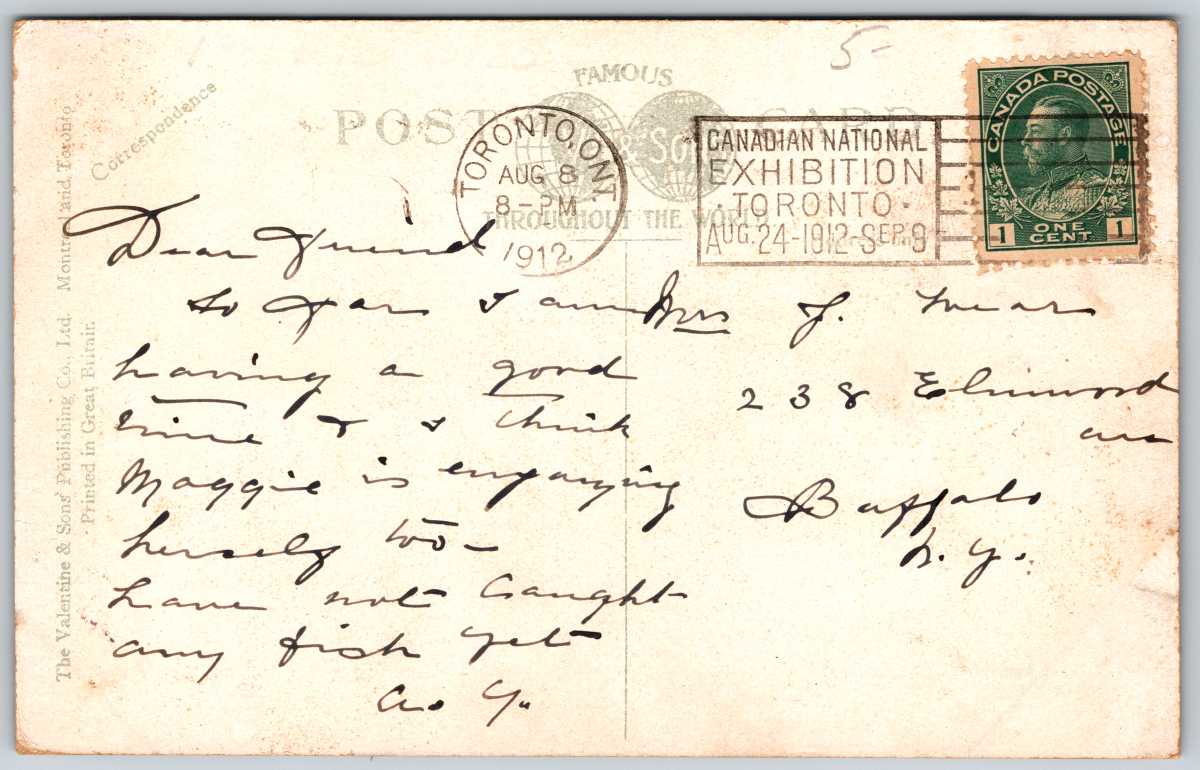 5-
FAMOUS
POST CARD
& SONS
THROUGHOUT THE WORLD
Correspondence
The Valentine & Sons' Publishing Co., Ltd. Montreal and Toronto
Printed in Great Britain.
TORONTO, ONT.
AUG 8
8-PM
1912
CANADIAN NATIONAL
EXHIBITION
·TORONTO·
AUG. 24-1912-SEP. 9
CANADA POSTAGE
1 ONE CENT 1
Dear Friend
So far I am
having a good
time & I think
Maggie is enjoying
herself too-
have not caught
any fish yet
A. Y.
Mrs J. Mear
238 Elmwood
ave
Buffalo
N. Y.